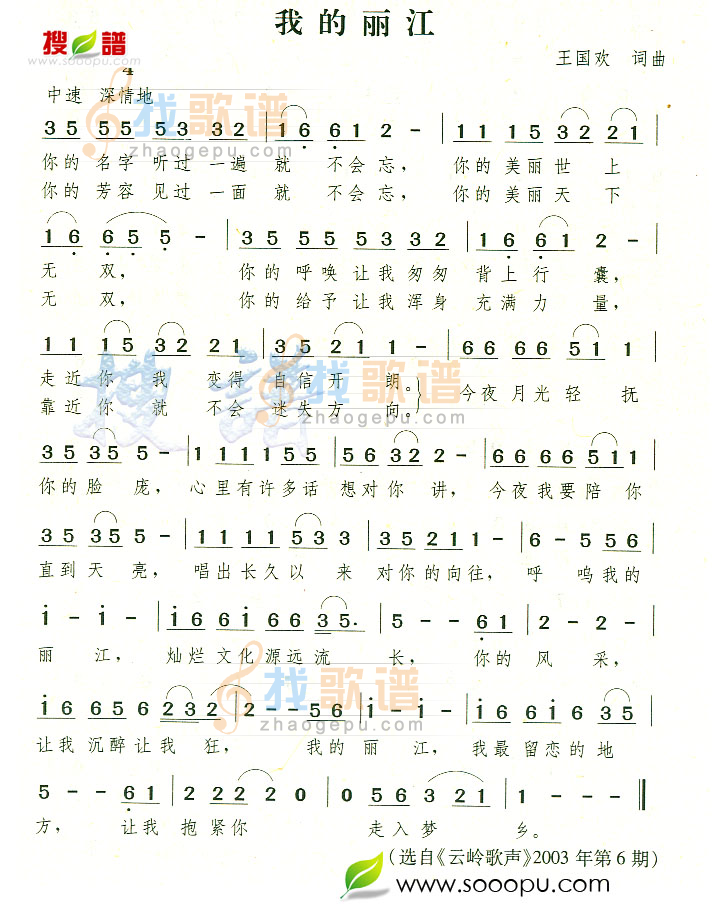 我的丽江
搜谱
www.sooopu.com
王国欢 词曲
4
中速 深情地
找歌谱
zhaogepu.com
3 5 5 5 5 3 3 2 | 1 6 6 1 2 - | 1 1 1 5 3 2 2 1 |
你的 名字 听过 一遍 就 不会 忘, 你的 美丽 世 上
你的 芳容 见过 一面 就 不会 忘, 你的 美丽 天 下
1 6 6 5 5 - | 3 5 5 5 5 3 3 2 | 1 6 6 1 2 - |
无 双, 你的 呼唤 让我 匆匆 背上 行 囊,
无 双, 你的 给予 让我 浑身 充满 力 量,
1 1 1 5 3 2 2 1 | 3 5 2 1 1 - | 6 6 6 6 6 5 1 1 |
走近 你 我 变得 自信 开 朗。} 今夜 月光 轻 抚
靠近 你 就 不会 迷失 方 向。
搜谱
找歌谱
zhaogepu.com
3 5 3 5 5 - | 1 1 1 1 1 5 5 | 5 6 3 2 2 - | 6 6 6 6 6 5 1 1 |
你的 脸 庞, 心里有许多话 想对你 讲, 今夜我要陪你
3 5 3 5 5 - | 1 1 1 1 1 5 3 3 | 3 5 2 1 1 - | 6 - 5 5 6 |
直到 天 亮, 唱出 长久 以 来 对你的向往, 呼 呜我的
i - i - | i 6 6 i 6 6 3 5. | 5 - - 6 1 | 2 - 2 - |
丽 江, 灿烂 文化 源远流 长, 你的 风 采,
找歌谱
zhaogepu.com
i 6 6 5 6 2 3 2 | 2 - - 5 6 | i - i - | i 6 6 i 6 3 5 |
让我 沉醉 让我 狂, 我的 丽 江, 我最 留恋的 地
5 - - 6 1 | 2 2 2 2 0 | 0 5 6 3 2 1 | 1 - - - ‖
方, 让我 抱紧你 走入 梦 乡。
(选自《云岭歌声》2003 年第 6 期)
www.sooopu.com